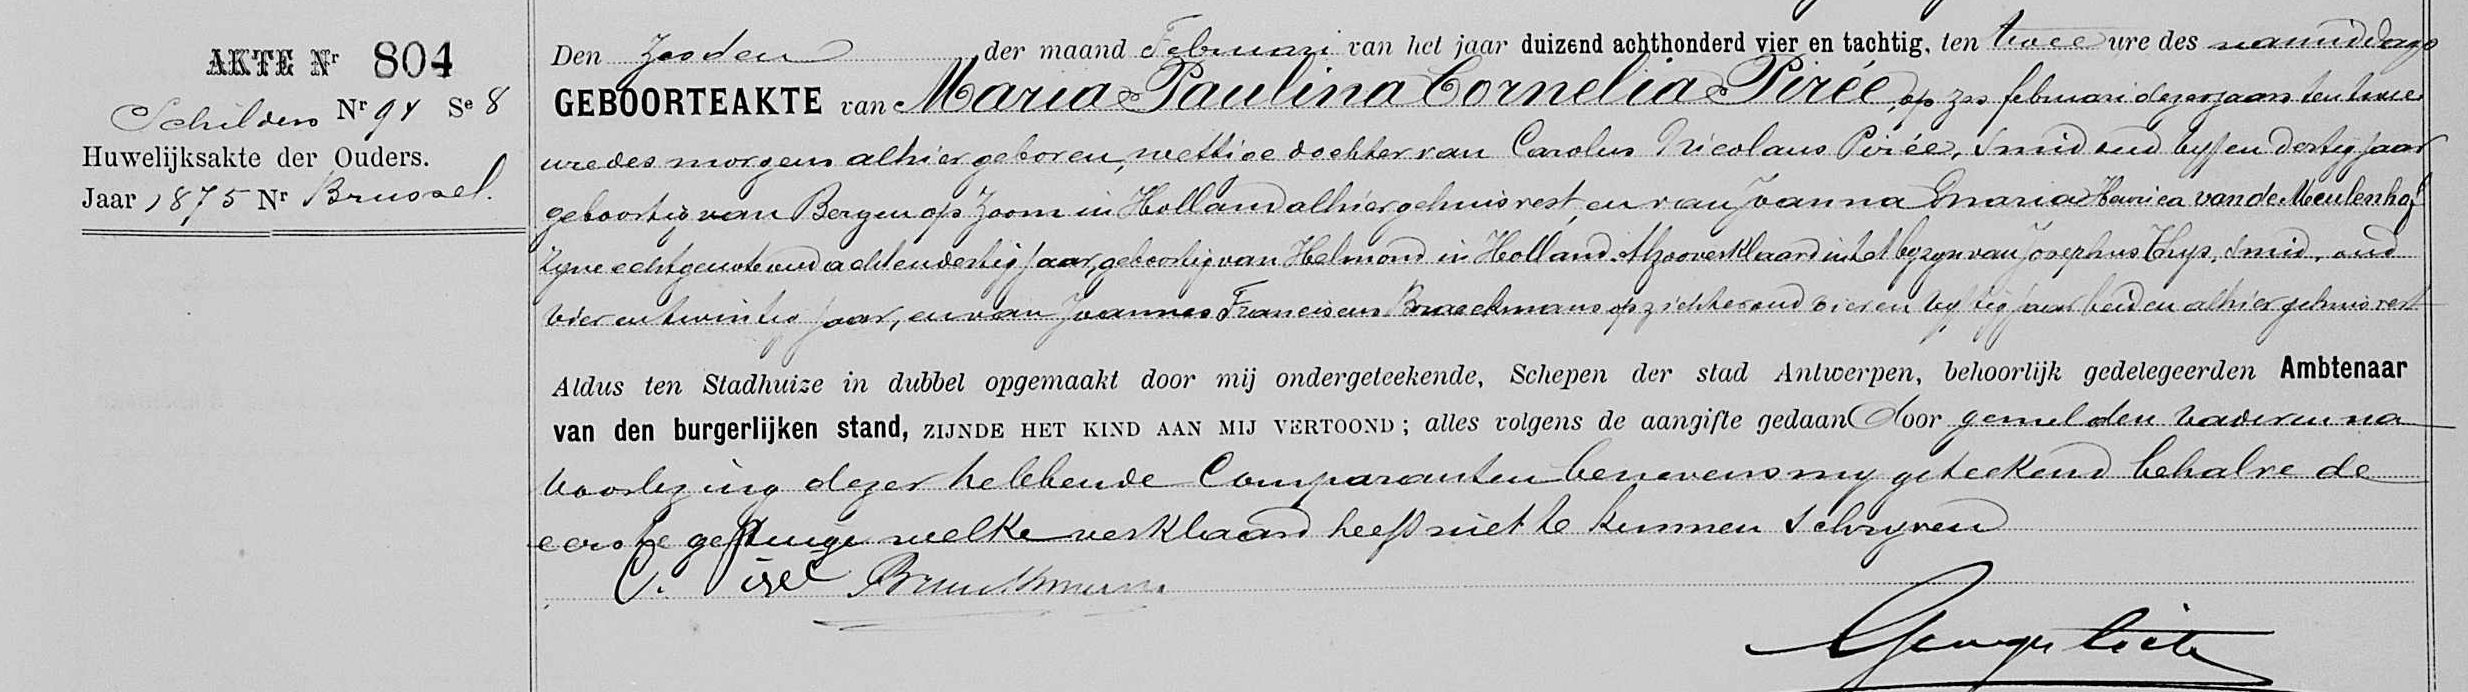 AKTE Nr 804
Schilders Nr 94 Se 8
Huwelijksakte der Ouders.
Jaar 1875 Nr Brussel.
Den zesden der maand Februari van het jaar duizend achthonderd vier en tachtig, ten twee ure des namiddags
GEBOORTEAKTE van Maria Paulina Cornelia Pirée, op zes februari dezer jaars ten twee
ure des morgens alhier geboren, wettige dochter van Carolus Nicolaus Pirée, Smid oud vyf en dertig jaar
geboortig van Bergen op Zoom in Holland alhier gehuisvest, en van Joanna Maria Henrica van de Meulenhof
zyne echtgenote oud acht en dertig jaar, geboortig van Helmond in Holland. Alzoo verklaard in het byzyn van Josephus Thys, Smid, oud
vier en twintig jaar, en van Joannes Franciscus Braeckmans opzichter oud vier en vyftig jaar beiden alhier gehuisvest
Aldus ten Stadhuize in dubbel opgemaakt door mij ondergeteekende, Schepen der stad Antwerpen, behoorlijk gedelegeerden Ambtenaar
van den burgerlijken stand, ZIJNDE HET KIND AAN MIJ VERTOOND; alles volgens de aangifte gedaan door gemelden vader en na
voorlezing dezer hebbende Comparanten benevens my geteekend behalve de
eerste getuige welke verklaard heeft niet te kunnen schryven
C. Pirée Braeckmans